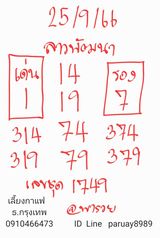 25/9/66
ลาวพัฒนา
เด่น 14 รอง
1 19 7
314 74 374
319 79 379
เลขชุด 1749
@พารวย
เลี้ยงกาแฟ
ธ.กรุงเทพ
0910466473 ID Line paruay8989